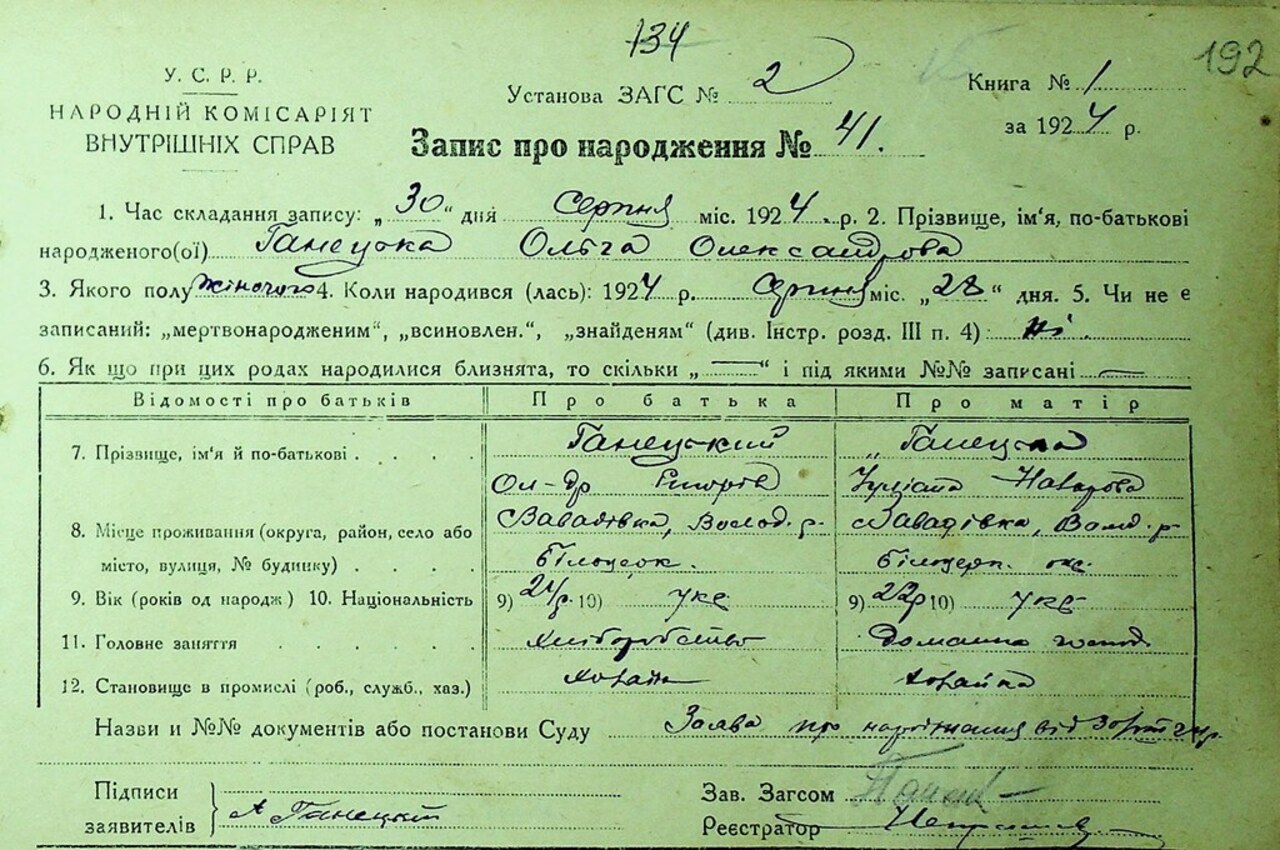 134
192
У. С. Р. Р.
НАРОДНІЙ КОМІСАРІЯТ
ВНУТРІШНІХ СПРАВ
Установа ЗАГС № 2
Книга № 1
за 1924 р.
Запис про народження № 41.
1. Час складання запису: „30“ дня Серпня міс. 1924 р. 2. Прізвище, ім'я, по-батькові
народженого(ої) Ганецька Ольга Олександрова
3. Якого полу жіночого 4. Коли народився (лась): 1924 р. Серпня міс. „28“ дня. 5. Чи не є
записаний: „мертвонародженим“, „всиновлен.“, „знайденям“ (див. Інстр. розд. III п. 4): ні
6. Як що при цих родах народилися близнята, то скільки „—“ і під якими №№ записані —
Відомості про батьків Про батька Про матір
7. Прізвище, ім'я й по-батькові . . . . Ганецький „Ганецька
Ол-др
8. Місце проживання (округа, район, село або Завадівка, Волод. р. Завадівка, Волод. р.
місто, вулиця, № будинку) . . . . Білоцерк. Білоцерк. окр.
9. Вік (років од народж) 10. Національність 9) 24 р. 10) укр 9) 22 р 10) укр
11. Головне заняття . . . . . Хліборобство Домашнє господ.
12. Становище в промислі (роб., служб., хаз.) хазяїн хазяйка
Назви и №№ документів або постанови Суду Заява про народження від 30
Підписи
заявителів А Ганецкій
Зав. Загсом
Реєстратор